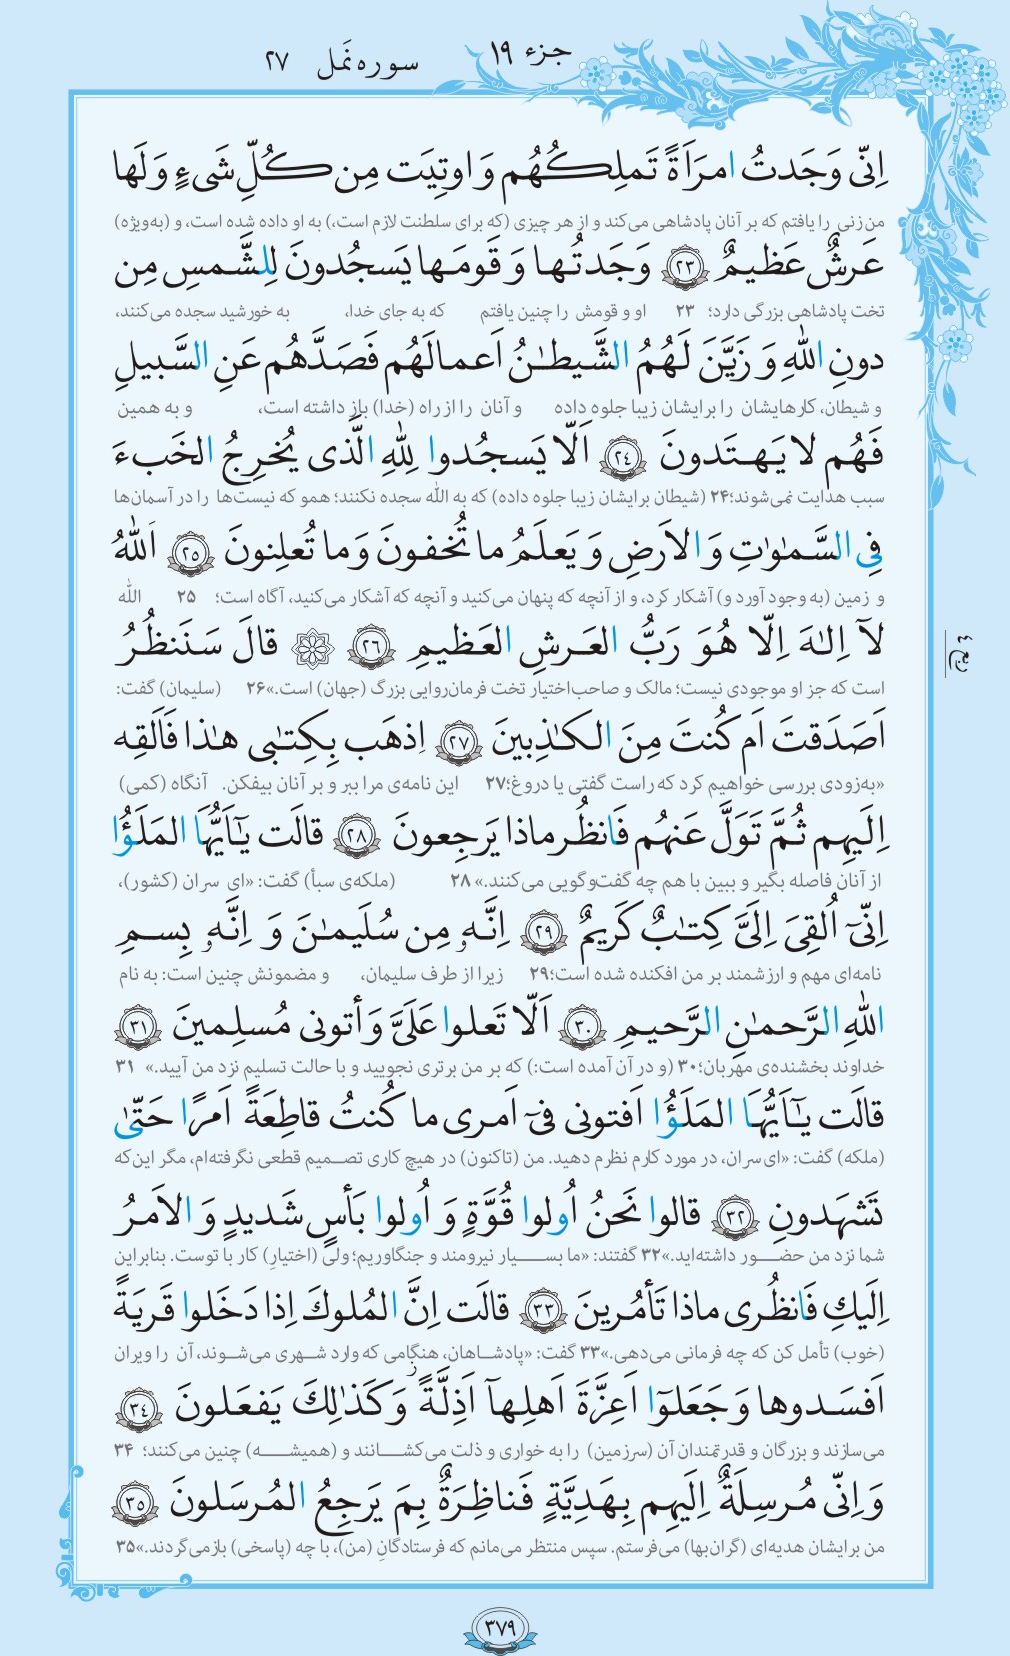 جزء ۱۹
سوره نَمل ۲۷
اِنّی وَجَدتُ امرَاَةً تَملِکُهُم وَ اوتِیَت مِن کُلِّ شَیءٍ وَ لَها
من زنی را یافتم که بر آنان پادشاهی می‌کند و از هر چیزی (که برای سلطنت لازم است،) به او داده شده است، و (به‌ویژه)
عَرشٌ عَظیمٌ ﴿۲۳﴾ وَجَدتُها وَ قَومَها یَسجُدونَ لِلشَّمسِ مِن
تخت پادشاهی بزرگی دارد؛ ۲۳ او و قومش را چنین یافتم که به جای خدا، به خورشید سجده می‌کنند،
دونِ اللهِ وَ زَیَّنَ لَهُمُ الشَّیطـٰنُ اَعمالَهُم فَصَدَّهُم عَنِ السَّبیلِ
و شیطان، کارهایشان را برایشان زیبا جلوه داده و آنان را از راه (خدا) باز داشته است، و به همین
فَهُم لا یَهتَدونَ ﴿۲۴﴾ اَلّا یَسجُدوا لِلّٰهِ الَّذی یُخرِجُ الخَبءَ
سبب هدایت نمی‌شوند؛۲۴ (شیطان برایشان زیبا جلوه داده) که به الله سجده نکنند؛ همو که نیست‌ها را در آسمان‌ها
فِی السَّمـٰوٰتِ وَ الاَرضِ وَ یَعلَمُ ما تُخفونَ وَ ما تُعلِنونَ ﴿۲۵﴾ اَللهُ
و زمین (به وجود آورد و) آشکار کرد، و از آنچه که پنهان می‌کنید و آنچه که آشکار می‌کنید، آگاه است؛ ۲۵ الله
لآ اِلـٰهَ اِلّا هُوَ رَبُّ العَرشِ العَظیمِ ﴿۲۶﴾ ۞ قالَ سَنَنظُرُ
است که جز او موجودی نیست؛ مالک و صاحب‌اختیار تخت فرمان‌روایی بزرگ (جهان) است.» ۲۶ (سلیمان) گفت:
اَصَدَقتَ اَم کُنتَ مِنَ الکـٰذِبینَ ﴿۲۷﴾ اِذهَب بِکِتـٰبی هـٰذا فَاَلقِه
«به‌زودی بررسی خواهیم کرد که راست گفتی یا دروغ؛۲۷ این نامه‌ی مرا ببر و بر آنان بیفکن. آنگاه (کمی)
اِلَیهِم ثُمَّ تَوَلَّ عَنهُم فَانظُر ماذا یَرجِعونَ ﴿۲۸﴾ قالَت یـٰٓاَیُّهَا المَلَؤُا
از آنان فاصله بگیر و ببین با هم چه گفت‌وگویی می‌کنند.» ۲۸ (ملکه‌ی سبأ) گفت: «ای سران (کشور)،
اِنّیٓ اُلقِیَ اِلَیَّ کِتـٰبٌ کَریمٌ ﴿۲۹﴾ اِنَّهو مِن سُلَیمـٰنَ وَ اِنَّهو بِسمِ
نامه‌ای مهم و ارزشمند بر من افکنده شده است؛۲۹ زیرا از طرف سلیمان، و مضمونش چنین است: به نام
اللهِ الرَّحمـٰنِ الرَّحیمِ ﴿۳۰﴾ اَلّا تَعلوا عَلَیَّ وَ أتونی مُسلِمینَ ﴿۳۱﴾
خداوند بخشنده‌ی مهربان؛۳۰ (و در آن آمده است:) که بر من برتری نجویید و با حالت تسلیم نزد من آیید.» ۳۱
قالَت یـٰٓاَیُّهَا المَلَؤُا اَفتونی فیٓ اَمری ما کُنتُ قاطِعَةً اَمرًا حَتّیٰ
(ملکه) گفت: «ای سران، در مورد کارم نظرم دهید. من (تاکنون) در هیچ کاری تصمیم قطعی نگرفته‌ام، مگر این‌که
تَشهَدونِ ﴿۳۲﴾ قالوا نَحنُ اُولوا قُوَّةٍ وَ اُولوا بَأسٍ شَدیدٍ وَ الاَمرُ
شما نزد من حضور داشته‌اید.»۳۲ گفتند: «ما بسیار نیرومند و جنگاوریم؛ ولی (اختیارِ) کار با توست. بنابراین
اِلَیکِ فَانظُری ماذا تَأمُرینَ ﴿۳۳﴾ قالَت اِنَّ المُلوکَ اِذا دَخَلوا قَریَةً
(خوب) تأمل کن که چه فرمانی می‌دهی.»۳۳ گفت: «پادشاهان، هنگامی که وارد شهری می‌شوند، آن را ویران
اَفسَدوها وَ جَعَلوٓا اَعِزَّةَ اَهلِهآ اَذِلَّةً ز وَ کَذٰلِکَ یَفعَلونَ ﴿۳۴﴾
می‌سازند و بزرگان و قدرتمندان آن (سرزمین) را به خواری و ذلت می‌کشانند و (همیشه) چنین می‌کنند؛ ۳۴
وَ اِنّی مُرسِلَةٌ اِلَیهِم بِهَدِیَّةٍ فَناظِرَةٌ بِمَ یَرجِعُ المُرسَلونَ ﴿۳۵﴾
من برایشان هدیه‌ای (گران‌بها) می‌فرستم. سپس منتظر می‌مانم که فرستادگانِ (من)، با چه (پاسخی) بازمی‌گردند.»۳۵
ربع ۴
۳۷۹